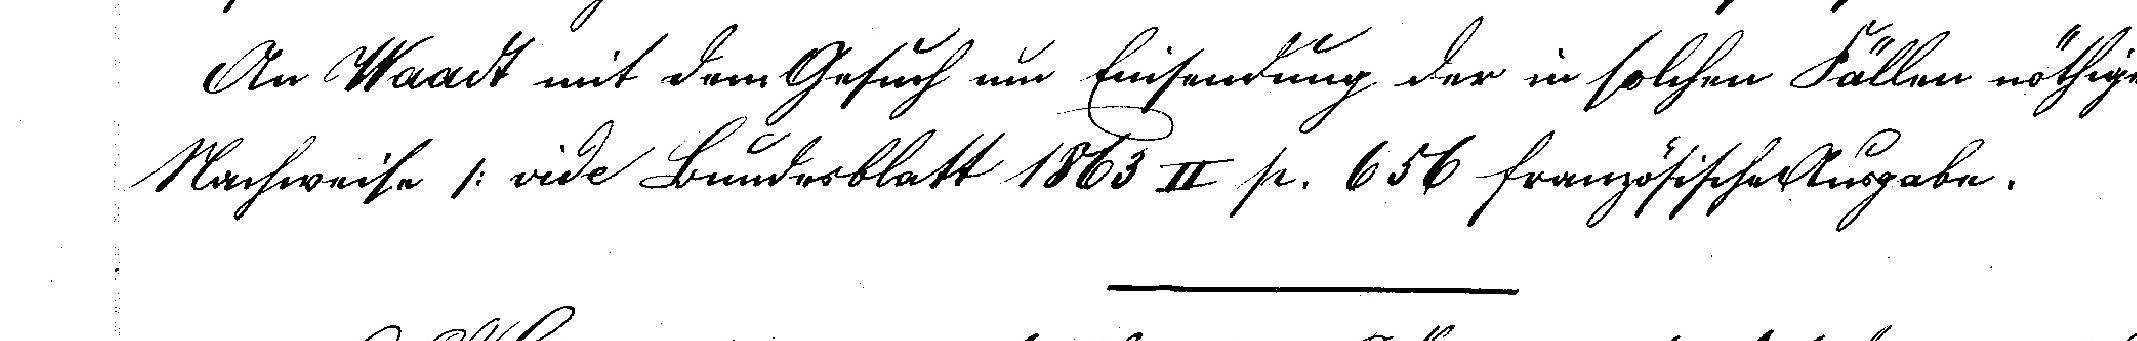 An Waadt mit dem Gesuch um Einsendung der in solchen Fällen nöthige
Nachweise /: vide Bundesblatt 1863 II p. 656 französische Ausgabe.